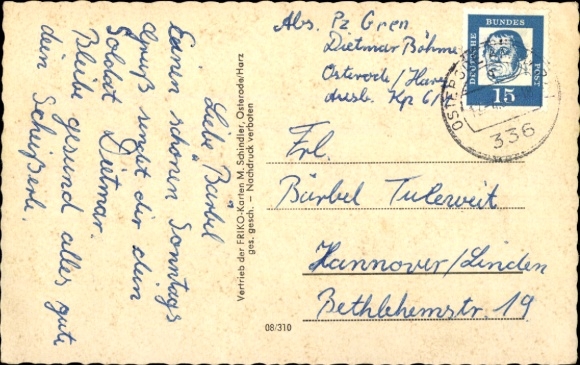 Liebe Bärbel
Einen schönen Sonntags
Gruß sendet dir dein
Soldat Dietmar.
Bleibe gesund alles gute
dein Scheißerle.
Vertrieb der FRIKO-Karten M. Schindler, Osterode/Harz
ges. gesch. — Nachdruck verboten
08/310
Abs. Pz Gren.
Dietmar Böhme
Osterode/Harz
Ausb. Kp 6/
DEUTSCHE BUNDES POST
15
OSTERODE
336
Frl.
Bärbel Tuleweit
Hannover/Linden
Bethlehemstr. 19